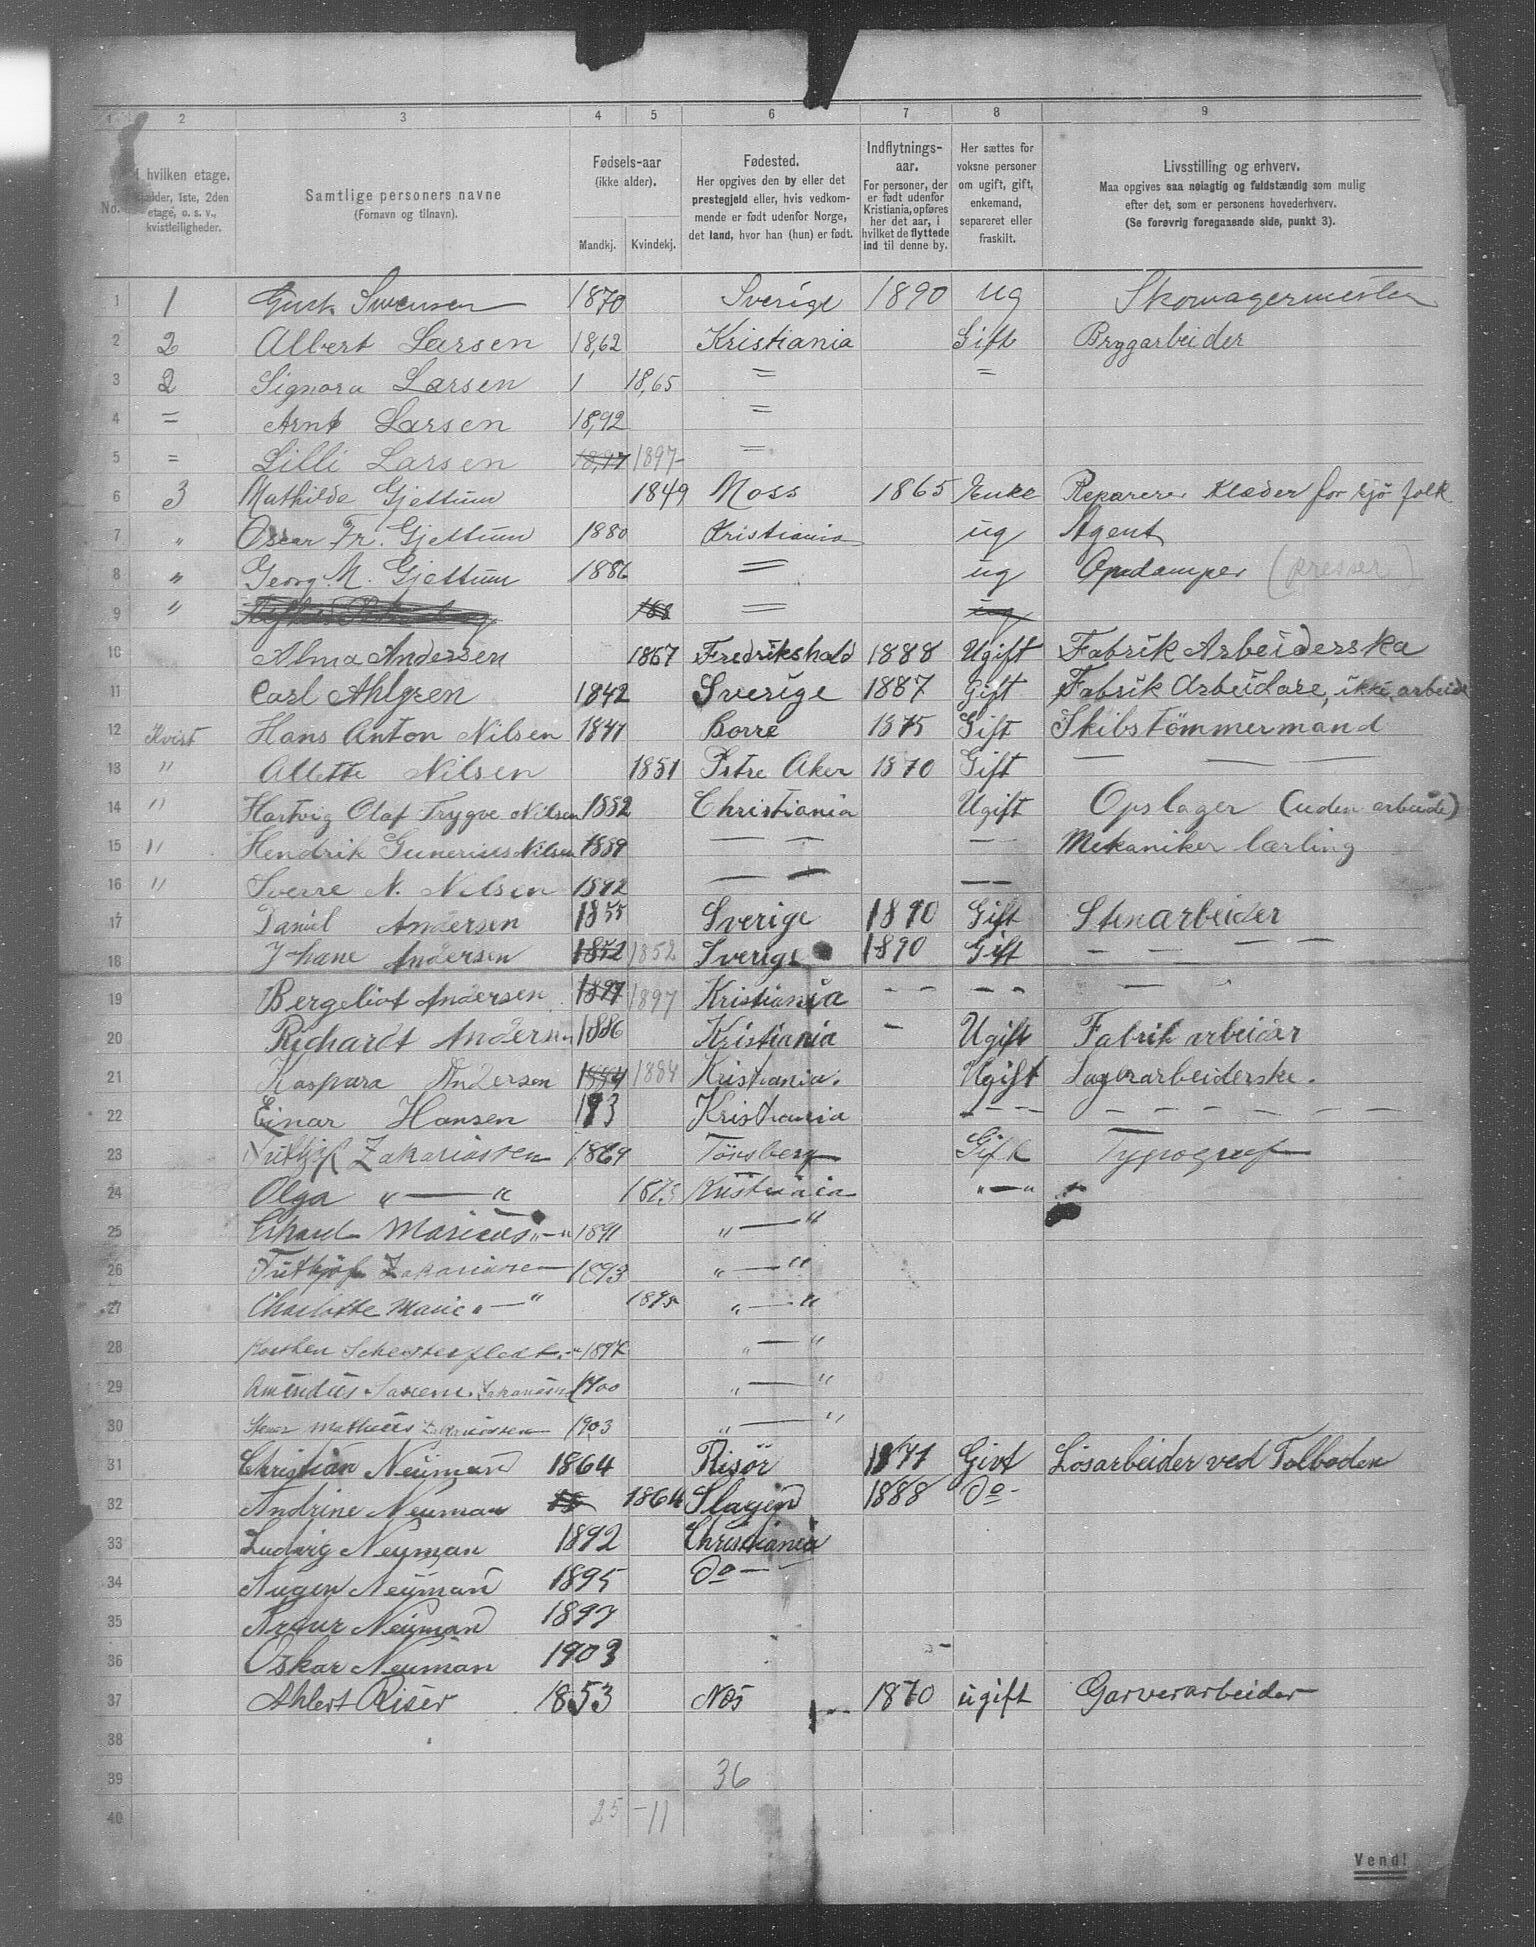 1 2 3 4 5 6 7 8 9
No.
I hvilken etage.
Kjælder, 1ste, 2den
etage, o. s. v.,
kvistleiligheder.
Samtlige personers navne
(Fornavn og tilnavn).
Fødsels-aar
(ikke alder).
Mandkj. Kvindekj.
Fødested.
Her opgives den by eller det
prestegjeld eller, hvis vedkom-
mende er født udenfor Norge,
det land, hvor han (hun) er født.
Indflytnings-
aar.
For personer, der
er født udenfor
Kristiania, opføres
her det aar, i
hvilket de flyttede
ind til denne by.
Her sættes for
voksne personer
om ugift, gift,
enkemand,
separeret eller
fraskilt.
Livsstilling og erhverv.
Maa opgives saa nøiagtig og fuldstændig som mulig
efter det, som er personens hovederhverv.
(Se forøvrig foregaaende side, punkt 3).
1 1 1870 Sverige 1890 ug Skomagermester
2 2 Albert Larsen 1862 Kristiania Gift Bryggarbeider
3 2 Signora Larsen 1 1865 = =
4 = Arnt Larsen 1892 =
5 = Lilli Larsen 1897 1897 =
6 3 Mathilde Gjettum 1849 Moss 1865 Enke Reparerer Klæder for sjö folk
7 " Oscar Fr. Gjettum 1880 Kristiania ug Agent
8 " Georg M. Gjettum 1886 = ug Opdamper (presser)
9 " 188 = ug
10 Alma Andersen 1867 Fredrikshald 1888 Ugift Fabrik Arbeiderska
11 Carl Ahlgren 1842 Sverige 1887 Gift Fabrik Arbeidare, ikke arbeide
12 Kvist Hans Anton Nilsen 1847 Borre 1875 Gift Skibstömmermand
13 " Allette Nilsen 1851 Vstre Aker 1870 Gift — — —
14 " Hartvig Olaf Trygve Nilsen 1882 Christiania Ugift Opslager (uden arbeide)
15 " Hendrik Gunerius Nilsen 1889 — — — Mekaniker lærling
16 " Sverre N. Nilsen 1892 — — —
17 Daniel Andersen 1855 Sverige 1890 Gift Stenarbeider
18 Andersen 1852 1852 Sverige 1890 Gift — — — —
19 Bergeliot Andersen 1897 1897 Kristiania - - - - — -
20 Richardt Andersen 1886 Kristiania - Ugift Fabrik arbeider
21 Kaspara Andersen 1884 1884 Kristiania. Ugift Lagerarbeiderske.
22 Einar Hansen 193 Kristiania - - - - - - - - - -
23 Zakariassen 1869 Tönsberg Gift Typograf
24 Olga "—" Kristiania "—"
25 Erhard Marius "—" 1891 "—"
26 Frithjof Zakariassen 1893 "—"
27 Charlotte Marie "—" 1895 "—"
28 "—" 1897 "—"
29 Zakariassen 1900 "—"
30 Mathias Zakariassen 1903 "—"
31 Christian Neuman 1864 Risör 1871 Givt Lösarbeider ved Tolboden
32 Andrine Neuman 18 1864 Slagen 1888 Do -
33 Ludvig Neuman 1892 Christiania
34 Augen Neuman 1895 Do —
35 Artur Neuman 1897
36 Oskar Neuman 1903
37 Ahlert Riser 1853 Næs 1870 ugift Garverarbeider
38
39 36
40 25 - 11
Vend!